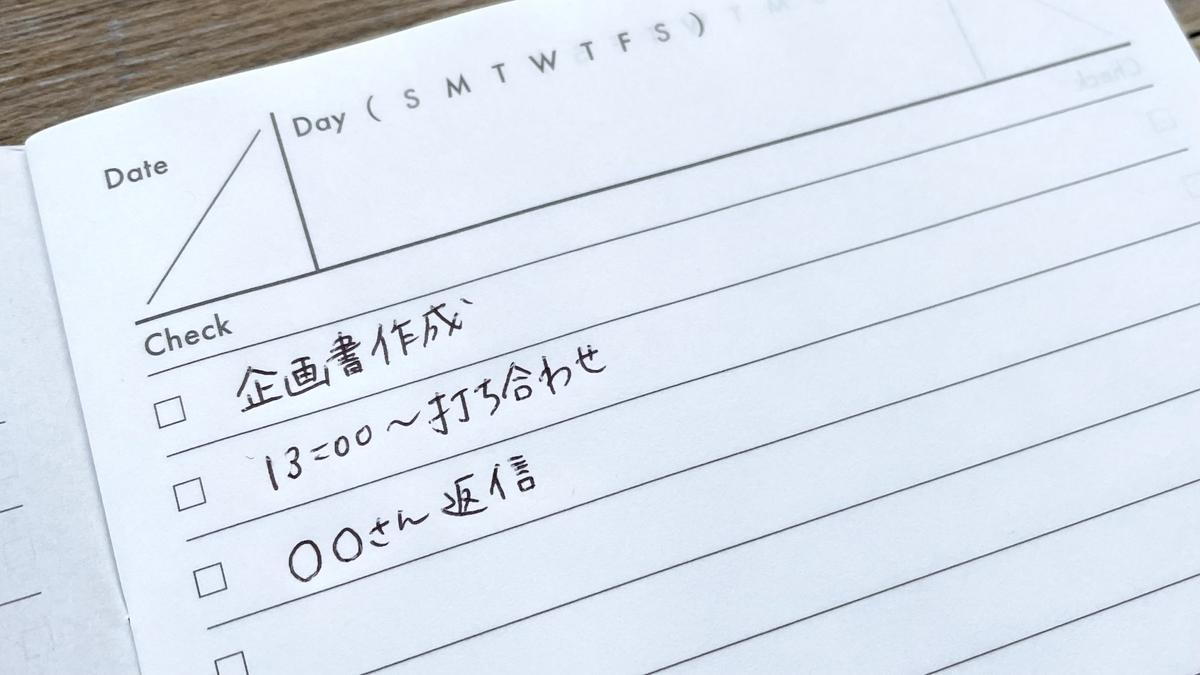 Date
Day ( S M T W T F S )
Check
企画書作成
13:00～打ち合わせ
〇〇さん返信